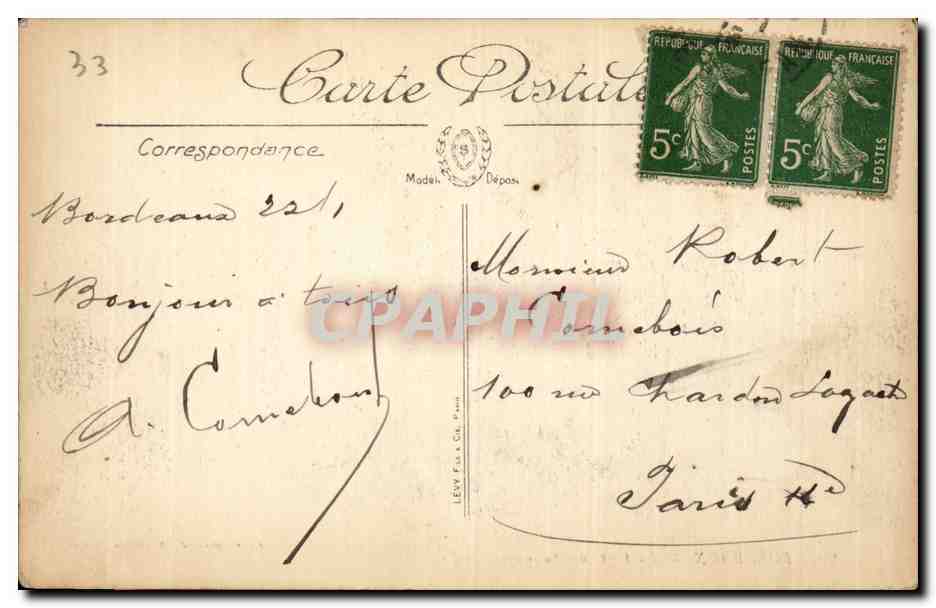 33
Carte Postale
RÉPUBLIQUE FRANÇAISE
5c
POSTES
RÉPUBLIQUE FRANÇAISE
5c
POSTES
Correspondance
Modèle Déposé
Bordeaux 22/1
Bonjour à tous
A. Cornebois
LEVY FILS & CIE, PARIS
Monsieur Robert
Cornebois
100 rue Chardon Lagache
Paris
CPAPHIL